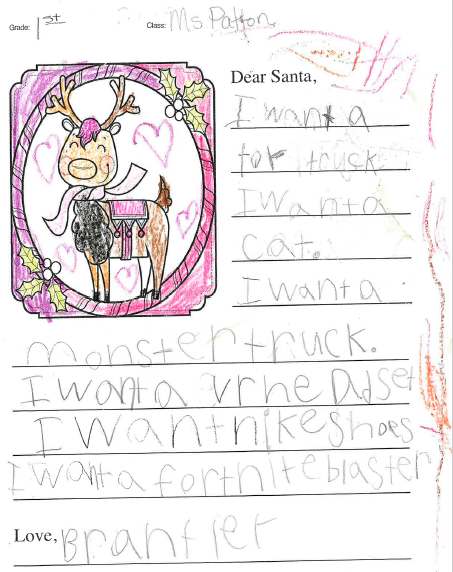 Grade: 1st Class: Ms Patton.
Dear Santa,
I want a
for truck.
I want a
cat.
I want a
monster truck.
I want a vr headset
I want nike shoes
I want a fortnite blaster
Love, Brantlet